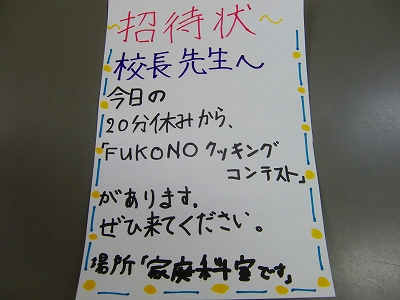 ～招待状～
校長先生へ
今日の
20分休みから、
「FUKONOクッキング
コンテスト」
があります。
ぜひ来てください。
場所「家庭科室です」